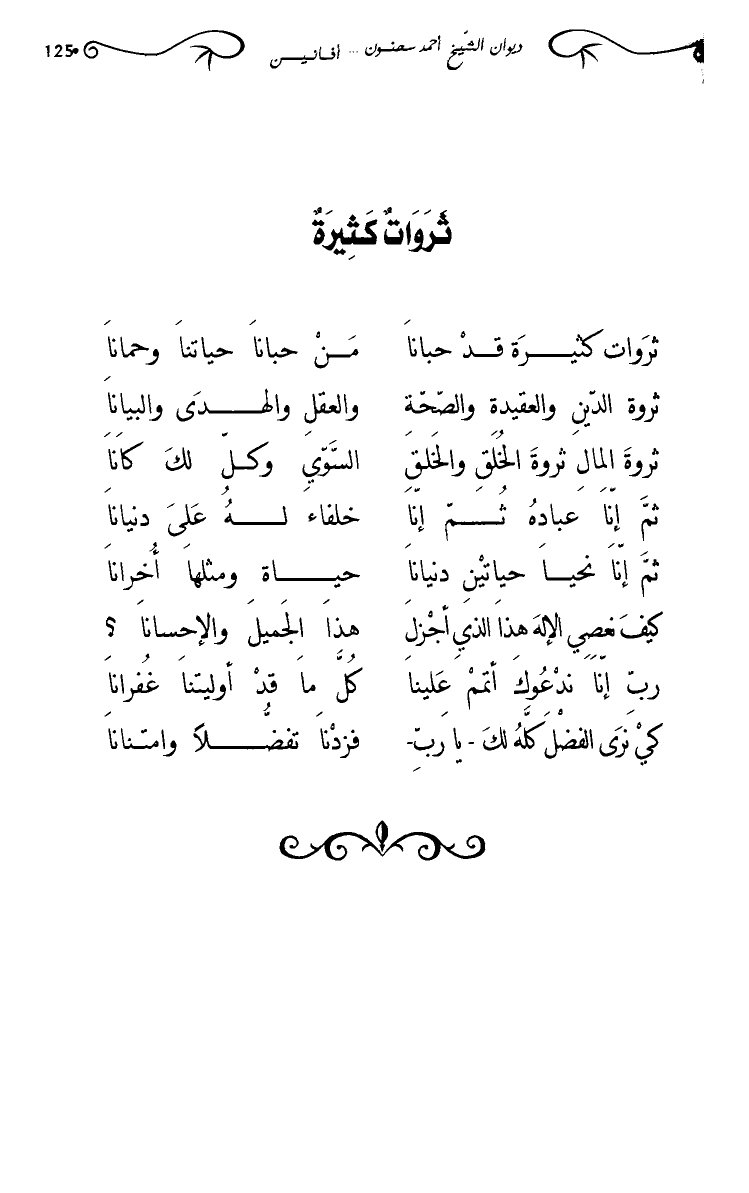 ديوان الشّيخ أحمد سحنون ... أفانيــن 125
ثَرَوَاتٌ كَثِيرَةٌ
ثرَوات كثيــــرَة قــدْ حباناَ مَــنْ حباناَ حياتناَ وحماناَ
ثروة الدّينِ والعقيدةِ والصّحّةِ والعقلِ والهــــدَى والبياناَ
ثروةَ المالِ ثروةَ الخُلُقِ والخَلـقِ السَّوّيِ وكــلّ لكَ كاَناَ
ثمَّ إنّاَ عبادهُ ثُـــمّ إنّاَ خلفاء لــــهُ عَلىَ دنياناَ
ثمَّ إنّاَ نحيــاَ حياتيْنِ دنياناَ حيــــاة ومثلهاَ أُخراناَ
كيفَ نعصِي الإلهَ هذاَ الذيِ أجْزلَ هذِاَ الجَميلَ والإحساناَ ؟
ربّ إنّاَ ندْعُوكَ أتممْ عَليناَ كُلَّ ماَ قدْ أوليتناَ غُفراناَ
كيْ نرَى الفضْلَ كلَّهُ لكَ - ياَ ربِّ- فزدْناَ تفضُّــــلاً وامتناناَ